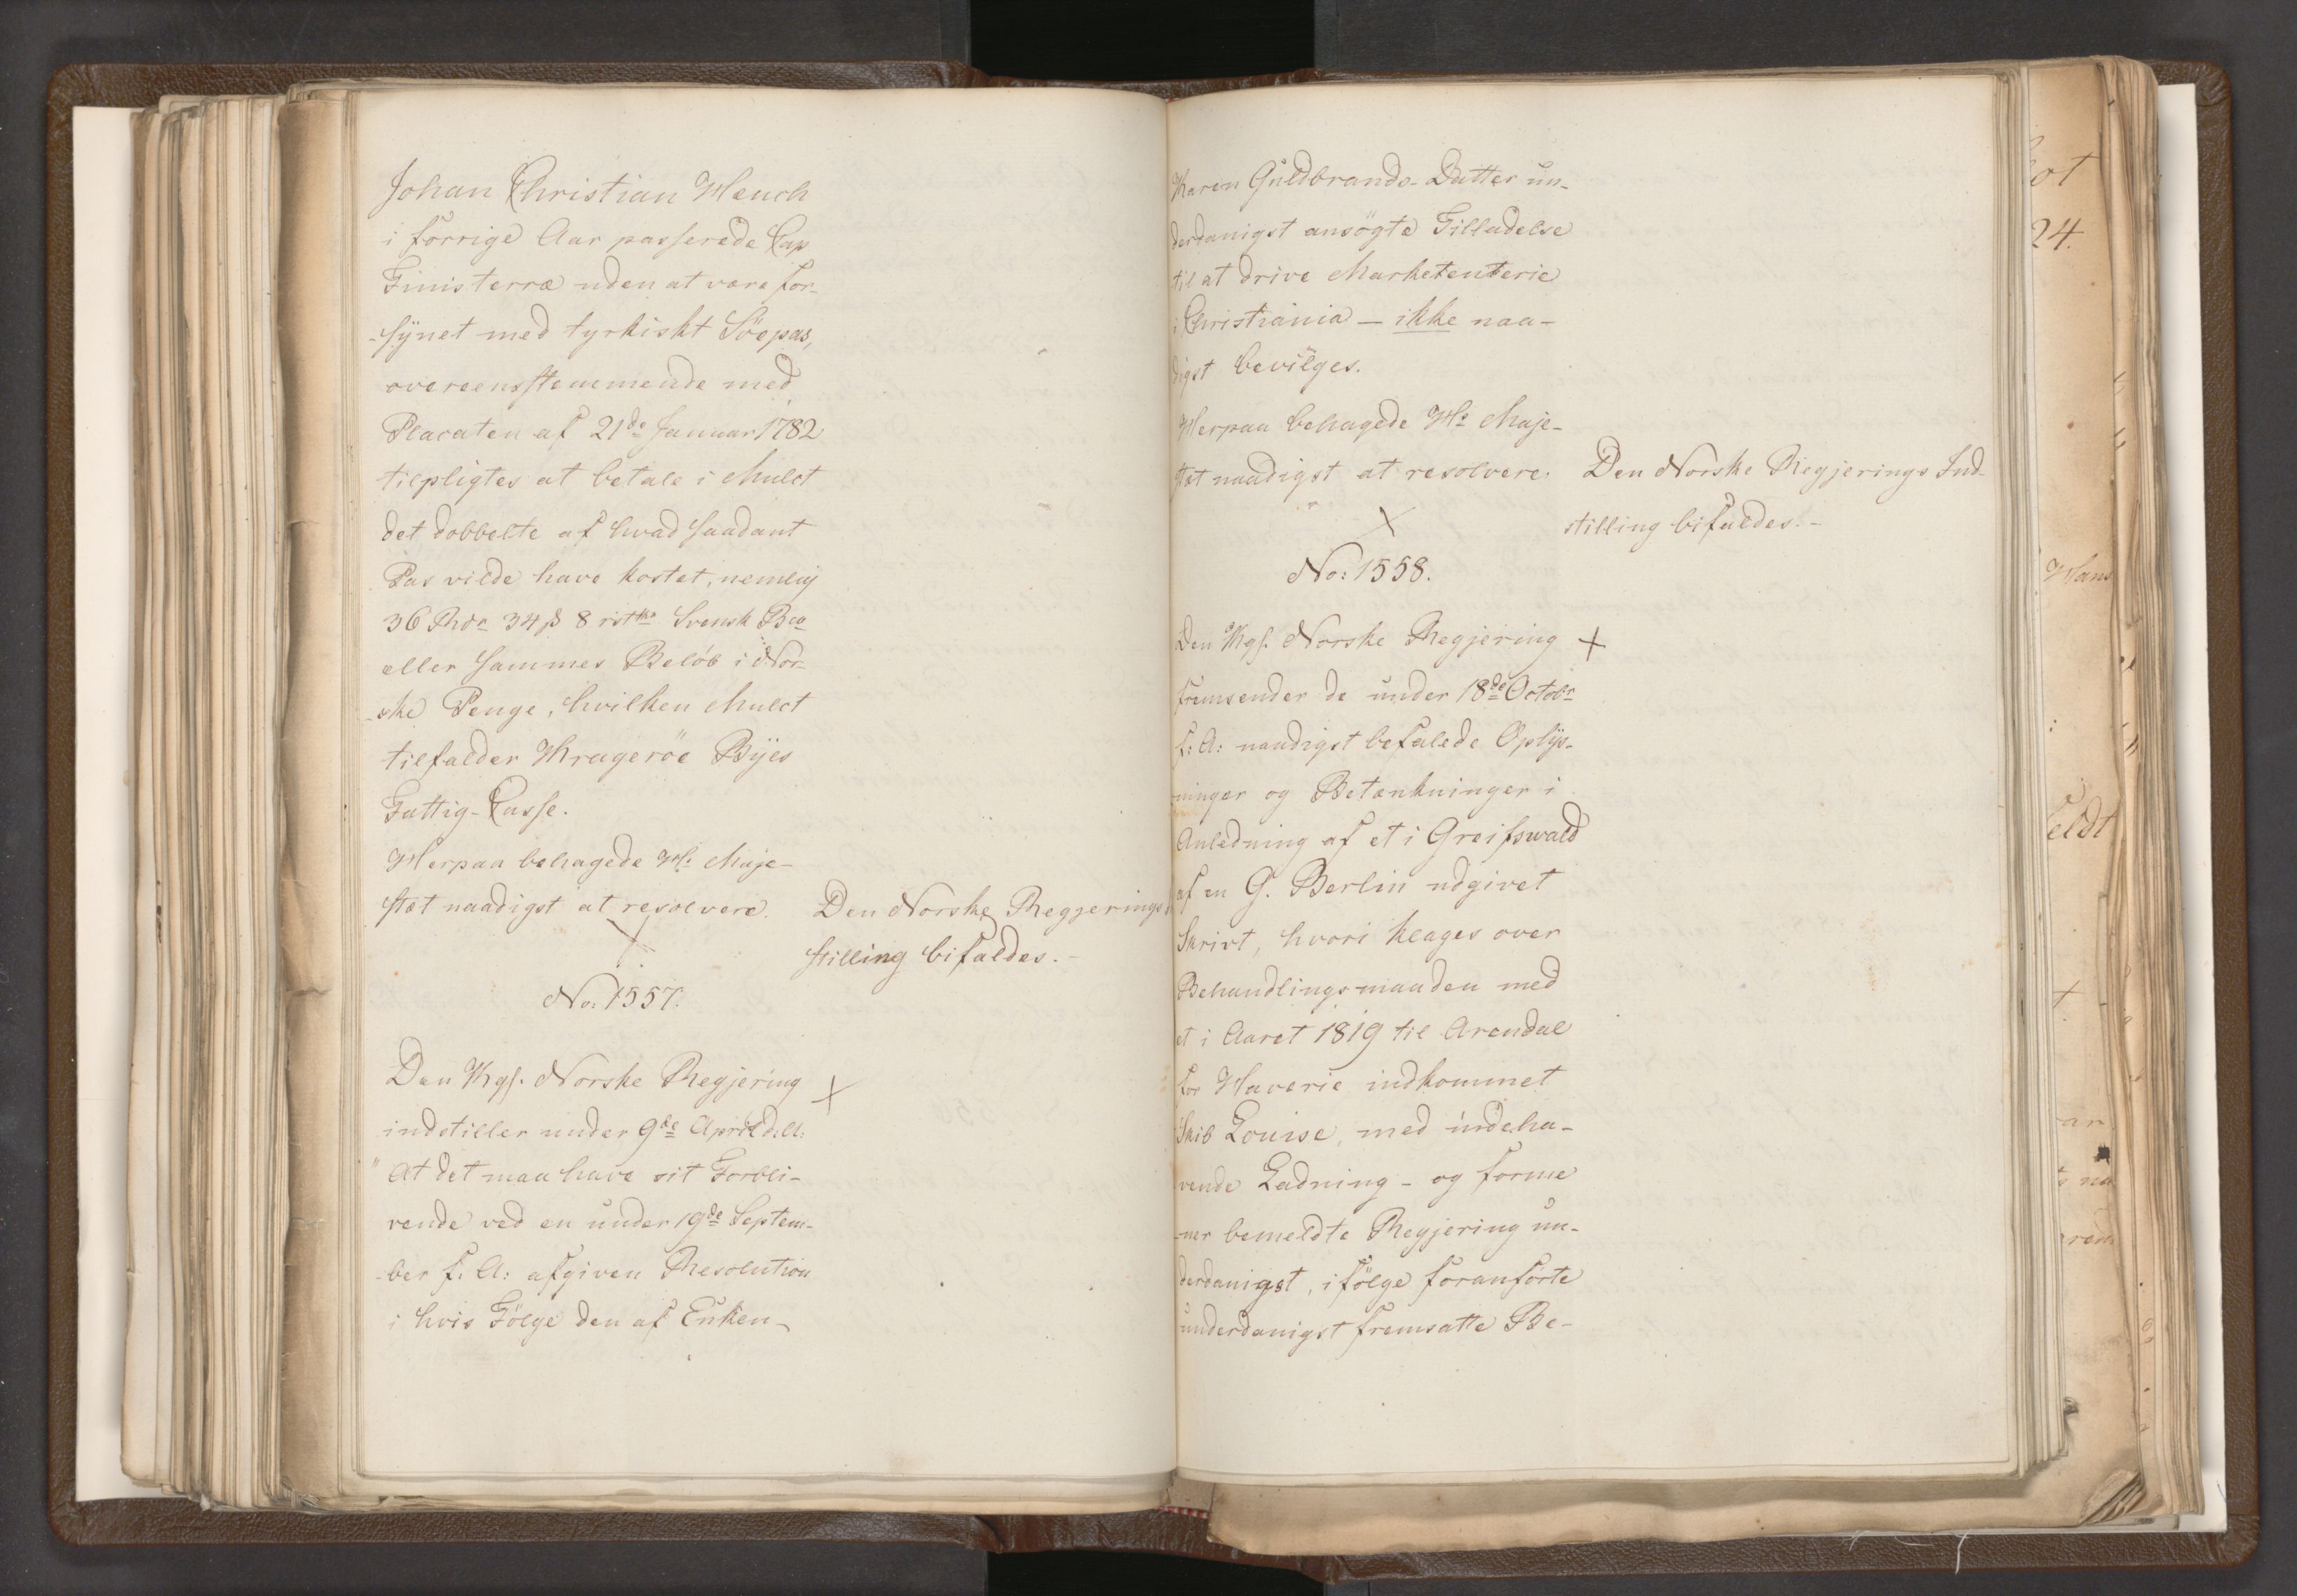 Johan Christian Heuch
i forrige Aar passerede Cap
Finisterræ uden at være for-
-synet med tyrkiskt Söepas,
overeensstemmende med
Placaten af 21de Januar 1782
tilpligtes at betale i Mulct
det dobbelte af hvad saadant
Pas vilde have kostet, nemlig
36 Rdr 34 ß 8 rstkr Svensk Bco
eller sammes Belöb i Nor-
-ske Penge, hvilken Mulct
tilfalder Krageröe Byes
Fattig-Casse.
Herpaa behagede Hs Maje-
stæt naadigst at resolvere.
Den Norske Regjerings
stilling bifaldes.-
No: 1557.
Den Kgs. Norske Regjering
indstiller under 9de April d. A:
" At det maa have sit Forbli-
vende ved en under 19de Septem-
-ber f. A: afgiven Resolution
i hvis Fölge den af Enken-
Karen Guldbrands-Datter un-
derdanigst ansögte Tilladelse
til at drive Marketenterie
i Christiania - ikke naa-
digst bevilges.
Herpaa behagede Hs Maje-
stæt naadigst at resolvere.
Den Norske Regjerings Ind-
stilling bifaldes.-
No: 1558.
Den Kgs. Norske Regjering
fremsender de under 18de Octobr
f: A: naadigst befalede Oplys-
ninger og Betænkninger i
Anledning af et i Greifswald
af en G. Berlin udgivet
Skrivt, hvori klages over
Behandlingsmaaden med
et i Aaret 1819 til Arendal
for Haverie indkommet
Skib Louise, med indeha-
vende Ladning - og forme
-ner bemeldte Regjering un-
derdanigst, ifölge foranförte
underdanigst fremsatte Be-
24.
Hans
eldt